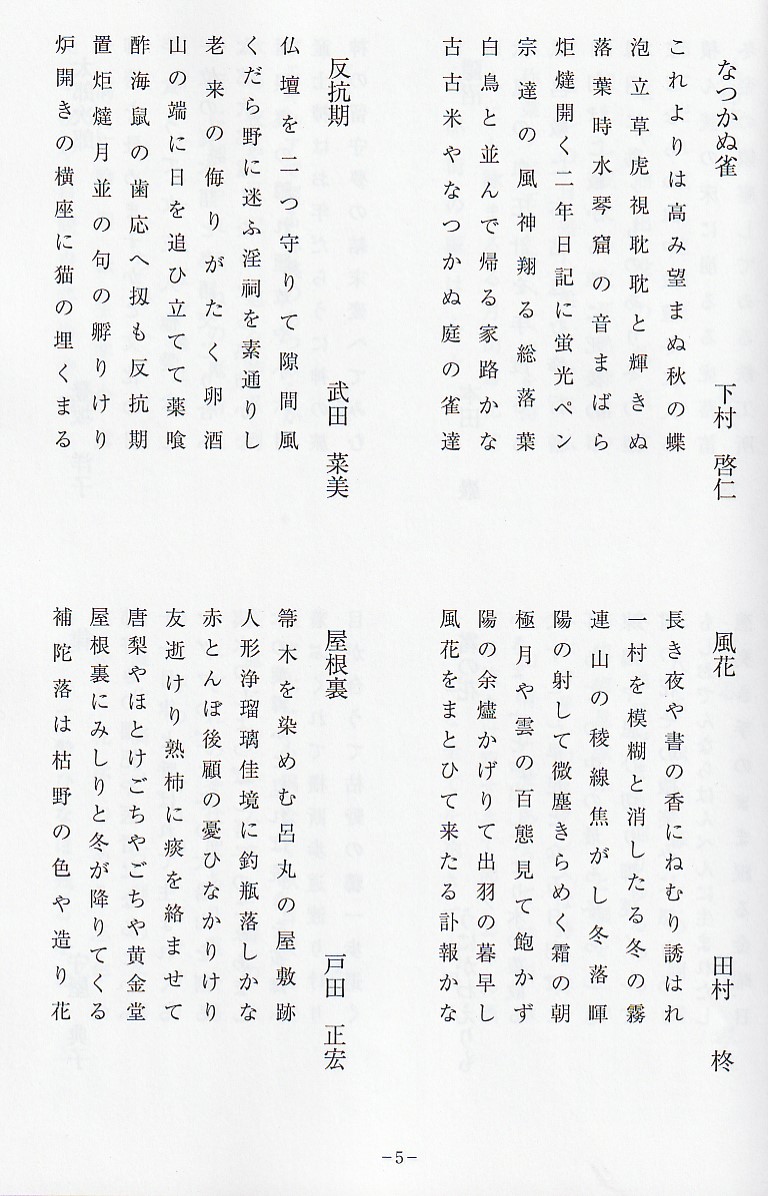 なつかぬ雀
下村 啓仁
これよりは高み望まぬ秋の蝶
泡立草虎視眈眈と輝きぬ
落葉時水琴窟の音まばら
炬燵開く二年日記に蛍光ペン
宗達の風神翔る総落葉
白鳥と並んで帰る家路かな
古古米やなつかぬ庭の雀達
反抗期
武田 菜美
仏壇を二つ守りて隙間風
くだら野に迷ふ淫祠を素通りし
老来の侮りがたく卵酒
山の端に日を追ひ立てて薬喰
酢海鼠の歯応へ扨も反抗期
置炬燵月並の句の孵りけり
炉開きの横座に猫の埋くまる
風花
田村 柊
長き夜や書の香にねむり誘はれ
一村を模糊と消したる冬の霧
連山の稜線焦がし冬落暉
陽の射して微塵きらめく霜の朝
極月や雲の百態見て飽かず
陽の余燼かげりて出羽の暮早し
風花をまとひて来たる訃報かな
屋根裏
戸田 正宏
箒木を染めむ呂丸の屋敷跡
人形浄瑠璃佳境に釣瓶落しかな
赤とんぼ後顧の憂ひなかりけり
友逝けり熟柿に痰を絡ませて
唐梨やほとけごちやごちや黄金堂
屋根裏にみしりと冬が降りてくる
補陀落は枯野の色や造り花
－5－